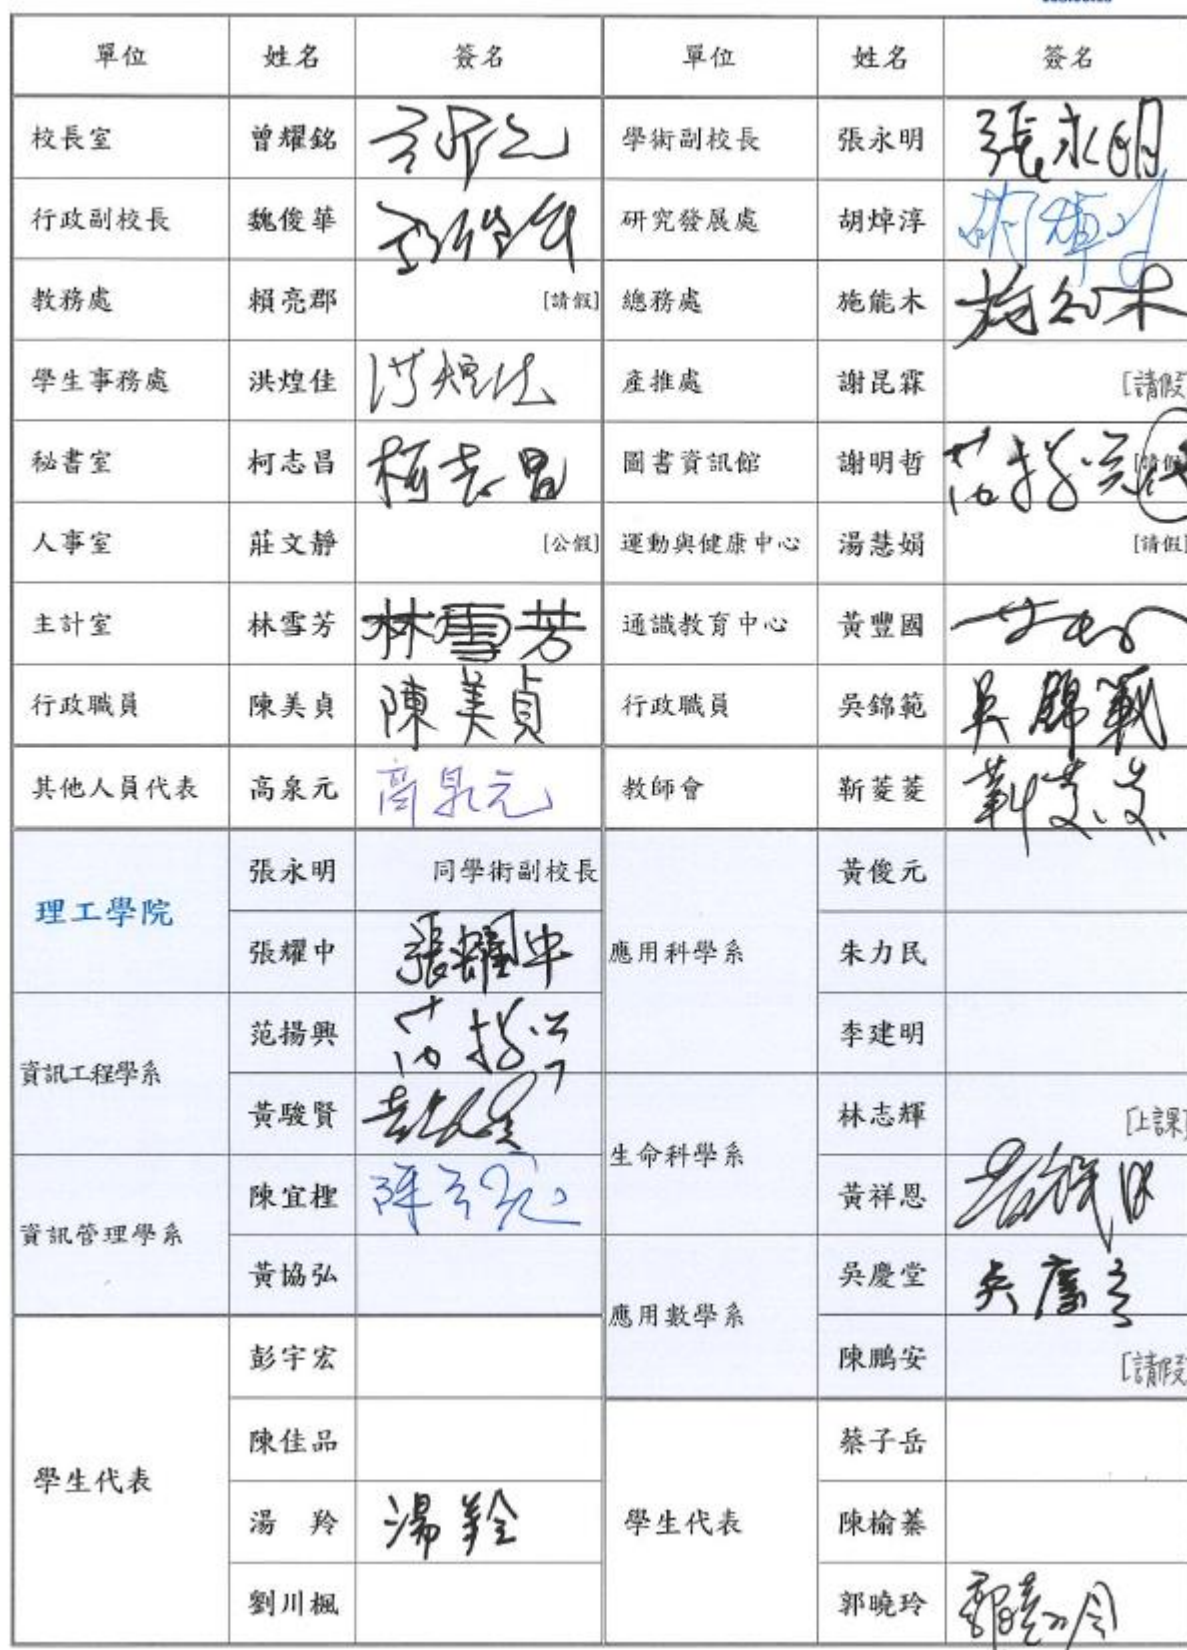 單位 姓名 簽名 單位 姓名 簽名
校長室 曾耀銘 學術副校長 張永明 張永明
行政副校長 魏俊華 研究發展處 胡焯淳
教務處 賴亮郡 [請假] 總務處 施能木 施能木
學生事務處 洪煌佳 洪煌佳 產推處 謝昆霖 [請假]
秘書室 柯志昌 柯志昌 圖書資訊館 謝明哲 范揚興 [請假]
人事室 莊文靜 [公假] 運動與健康中心 湯慧娟 [請假]
主計室 林雪芳 林雪芳 通識教育中心 黃豐國
行政職員 陳美貞 陳美貞 行政職員 吳錦範 吳錦範
其他人員代表 高泉元 高泉元 教師會 靳菱菱 靳菱菱
理工學院 張永明 同學術副校長 應用科學系 黃俊元
張耀中 張耀中 朱力民
資訊工程學系 范揚興 范揚興 李建明
黃駿賢 生命科學系 林志輝 [上課]
資訊管理學系 陳宜檉 黃祥恩
黃協弘 應用數學系 吳慶堂 吳慶堂
學生代表 彭宇宏 陳鵬安 [請假]
陳佳品 學生代表 蔡子岳
湯 羚 湯羚 陳榆蓁
劉川楓 郭曉玲 郭曉玲